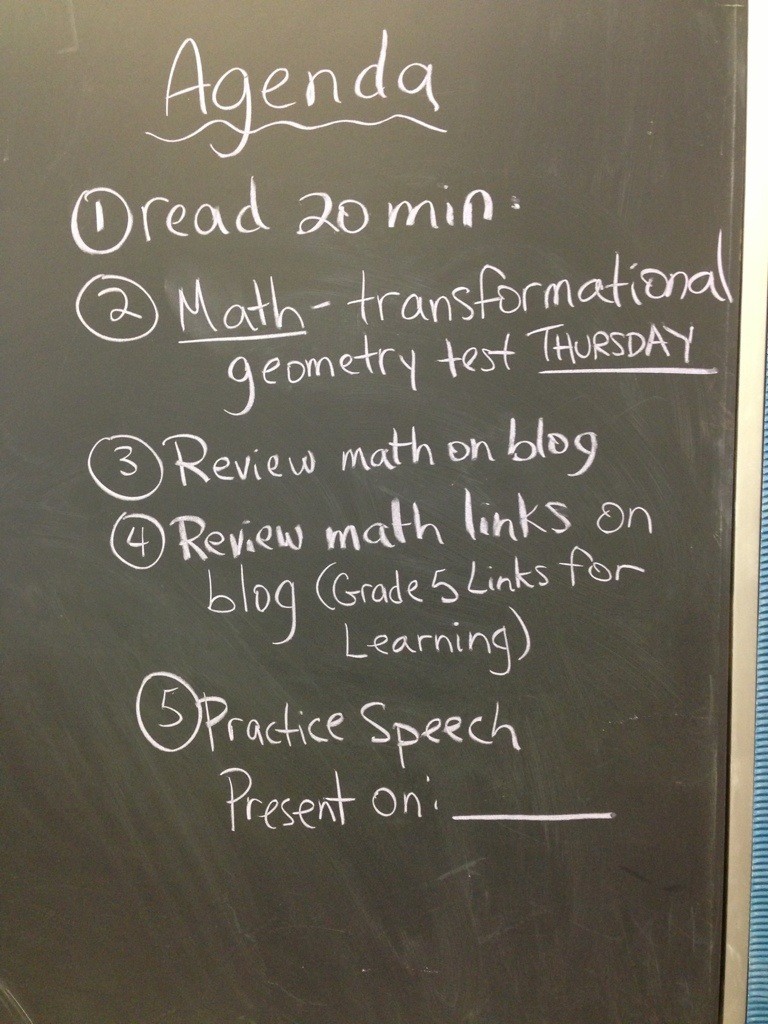 Agenda
① read 20 min.
② Math - transformational
geometry test THURSDAY
③ Review math on blog
④ Review math links on
blog (Grade 5 Links for
Learning)
⑤ Practice Speech
Present on: ______